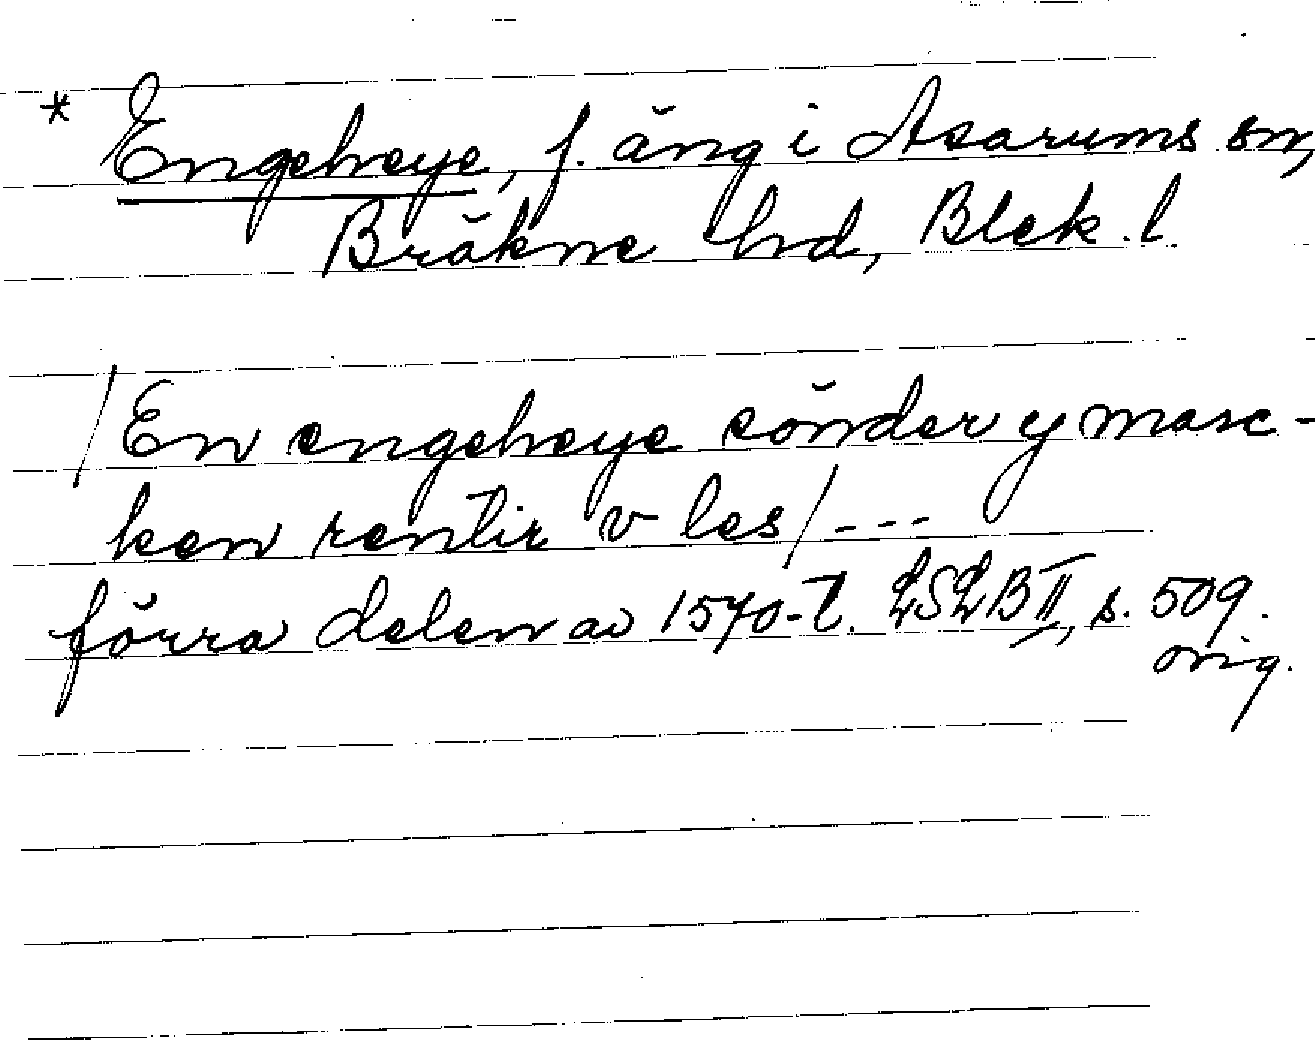 * Engeheye, f. äng i Asarums sn,
Bräkne hd, Blek. l.
/En engeheye sönder y masc-
ken rentir v les/ ---
förra delen av 1570-t. LSLB II, s. 509.
orig.